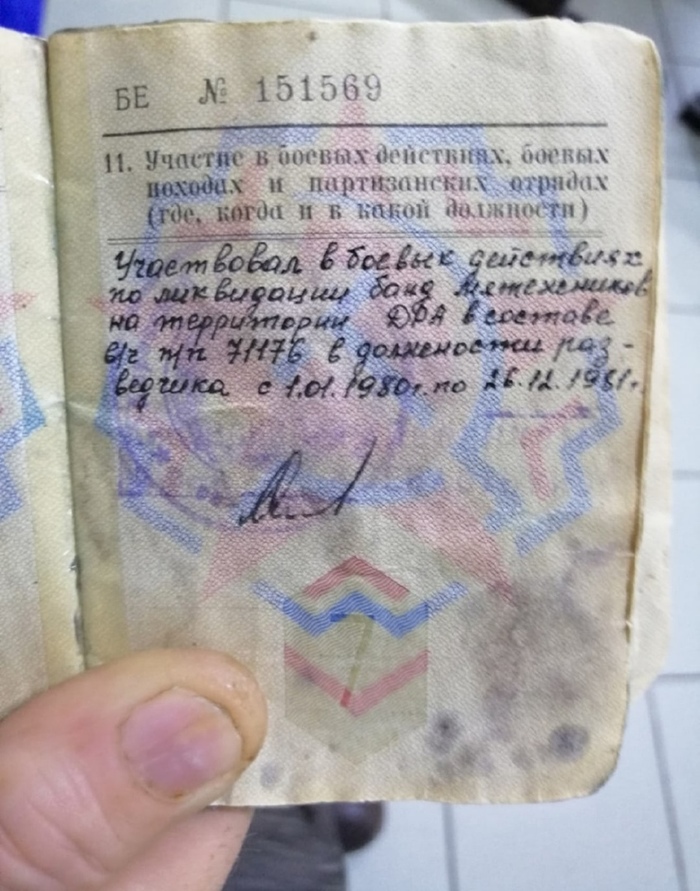 БЕ № 151569
11. Участие в боевых действиях, боевых
походах и партизанских отрядах
(где, когда и в какой должности)
Участвовал в боевых действиях
по ликвидации банд мятежеников
на территории ДРА в составе
в/ч п/п 71176 в должености раз-
ведчика с 1.01.1980г. по 26.12.1981г.
7